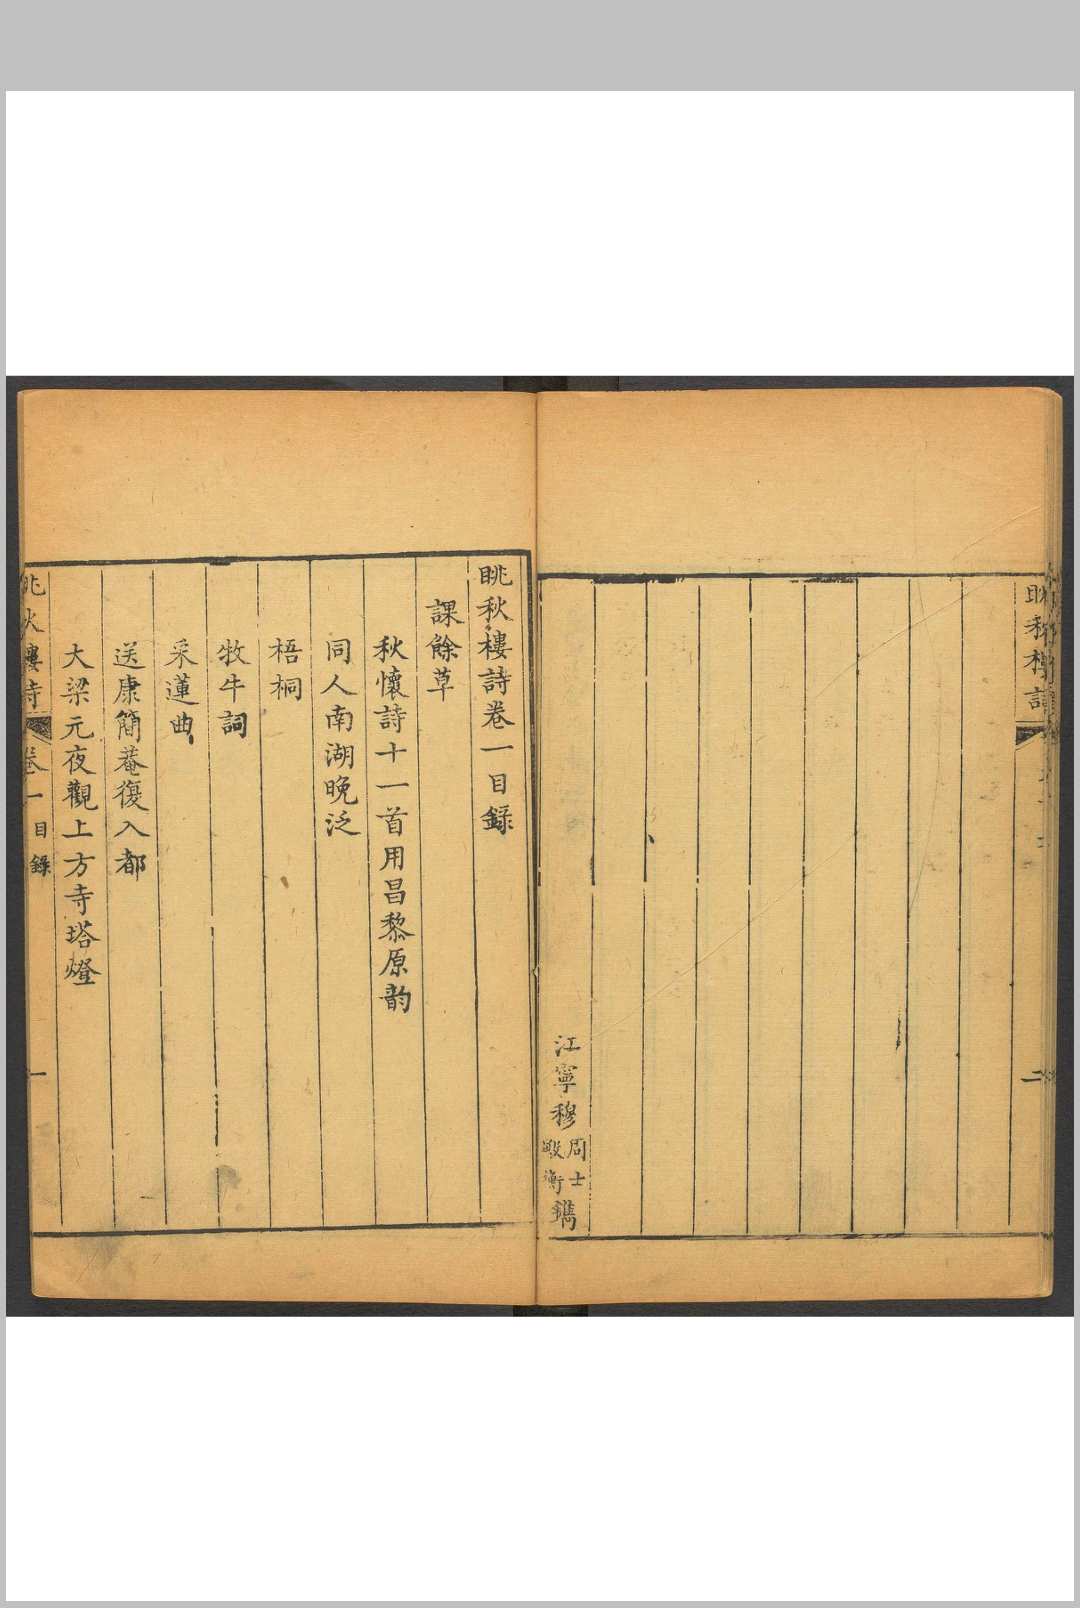 眺秋樓詩
二
江寧穆
周士
衡
鐫
眺秋樓詩卷一目錄
課餘草
秋懷詩十一首用昌黎原韵
同人南湖晚泛
梧桐
牧牛詞
采蓮曲
送康簡菴復入都
大梁元夜觀上方寺塔燈
眺秋樓詩 卷一 目錄 一